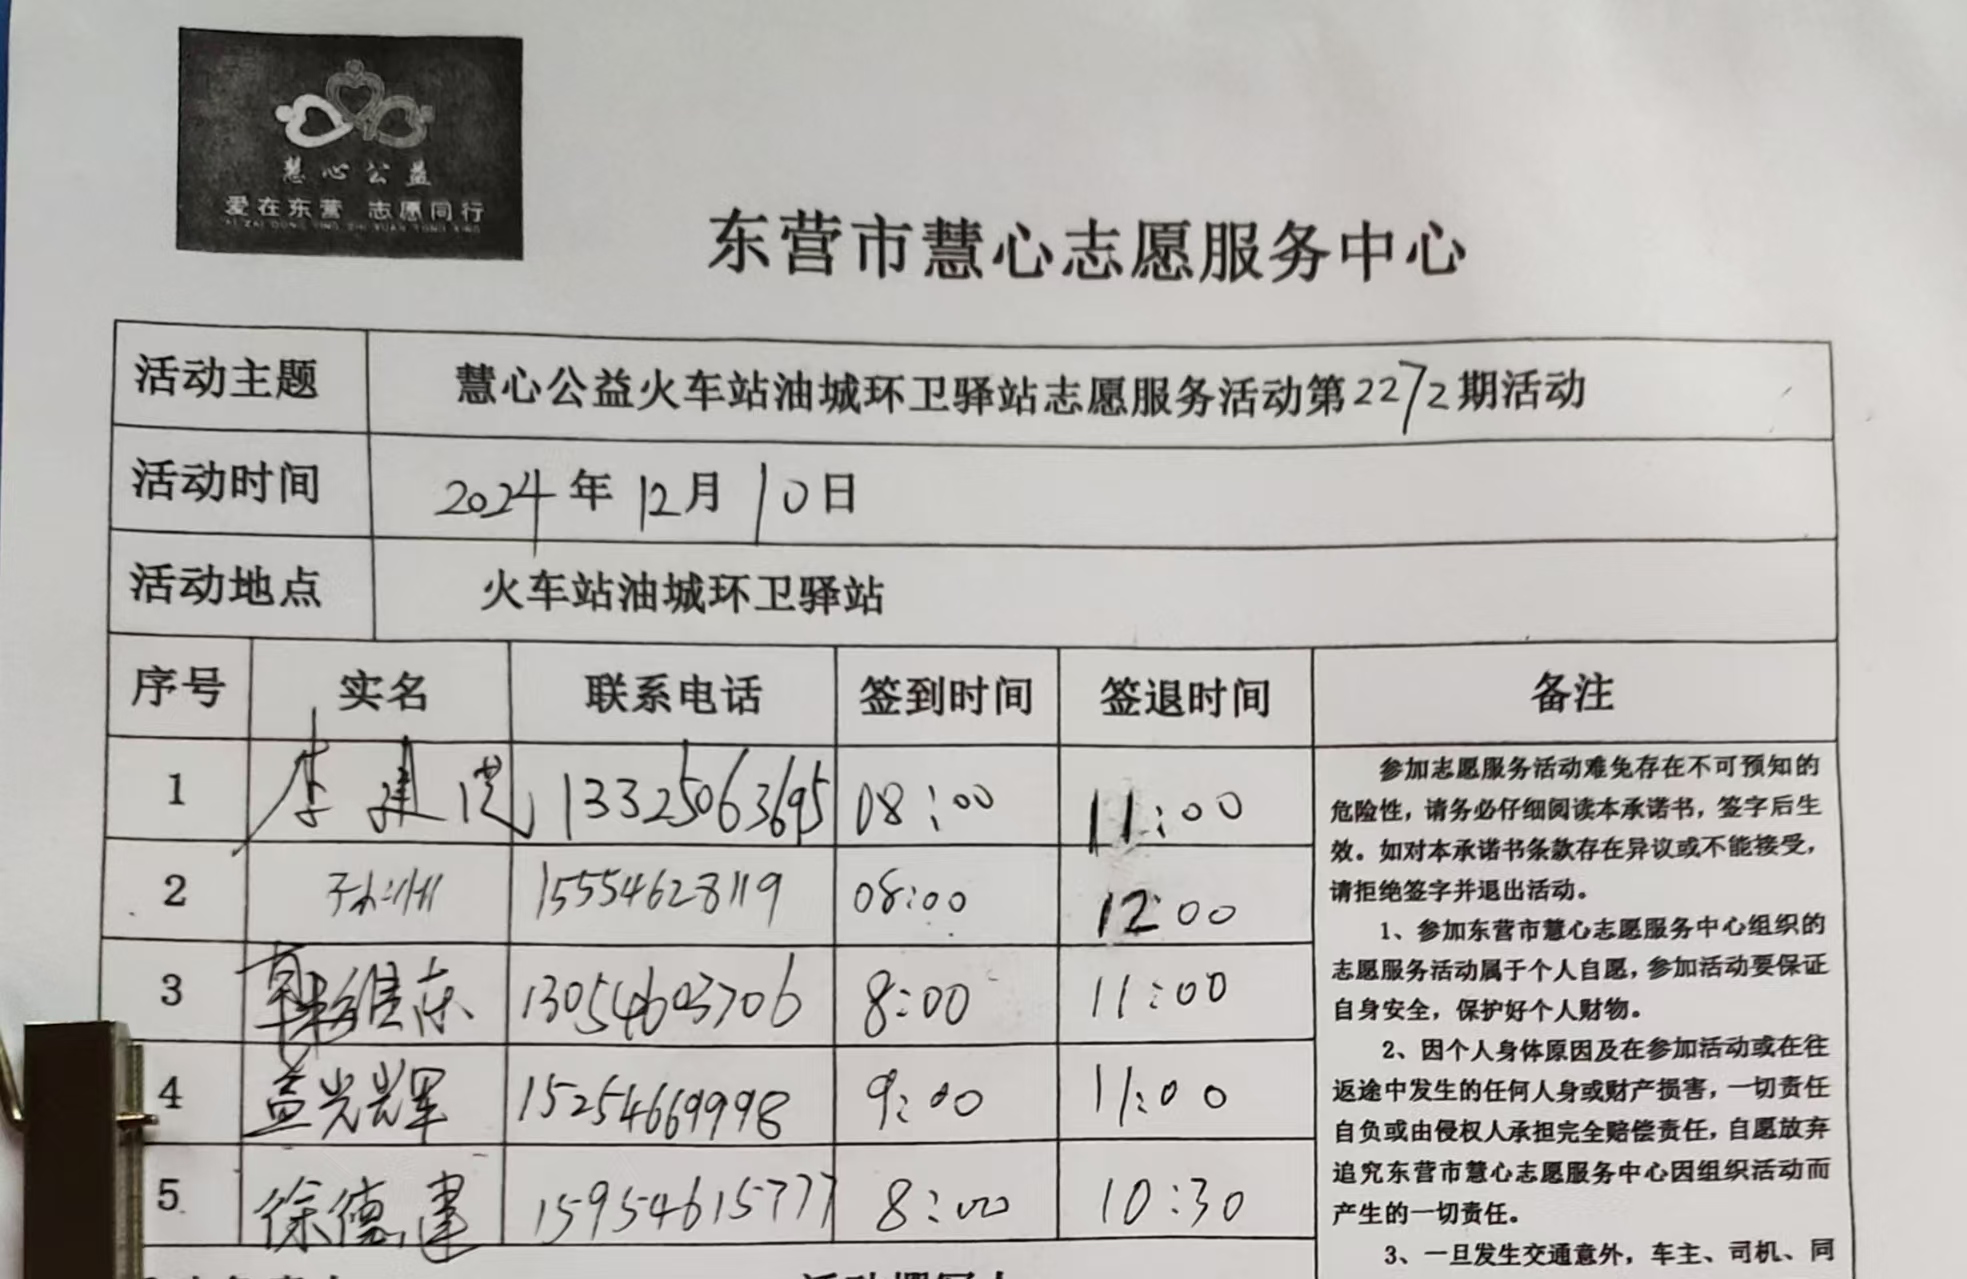 慧心公益
爱在东营 志愿同行
AI ZAI DONG YING ZHI YUAN TONG XING
东营市慧心志愿服务中心
活动主题 慧心公益火车站油城环卫驿站志愿服务活动第2272期活动
活动时间 2024年12月10日
活动地点 火车站油城环卫驿站
序号 实名 联系电话 签到时间 签退时间 备注
1 李建 13325063695 08:00 11:00
2 15554628119 08:00 12:00
3 维东 13054603706 8:00 11:00
4 盖光辉 15254669998 9:00 11:00
5 徐德建 15954615777 8:00 10:30
参加志愿服务活动难免存在不可预知的
危险性，请务必仔细阅读本承诺书，签字后生
效。如对本承诺书条款存在异议或不能接受，
请拒绝签字并退出活动。
1、参加东营市慧心志愿服务中心组织的
志愿服务活动属于个人自愿，参加活动要保证
自身安全，保护好个人财物。
2、因个人身体原因及在参加活动或在往
返途中发生的任何人身或财产损害，一切责任
自负或由侵权人承担完全赔偿责任，自愿放弃
追究东营市慧心志愿服务中心因组织活动而
产生的一切责任。
3、一旦发生交通意外，车主、司机、同